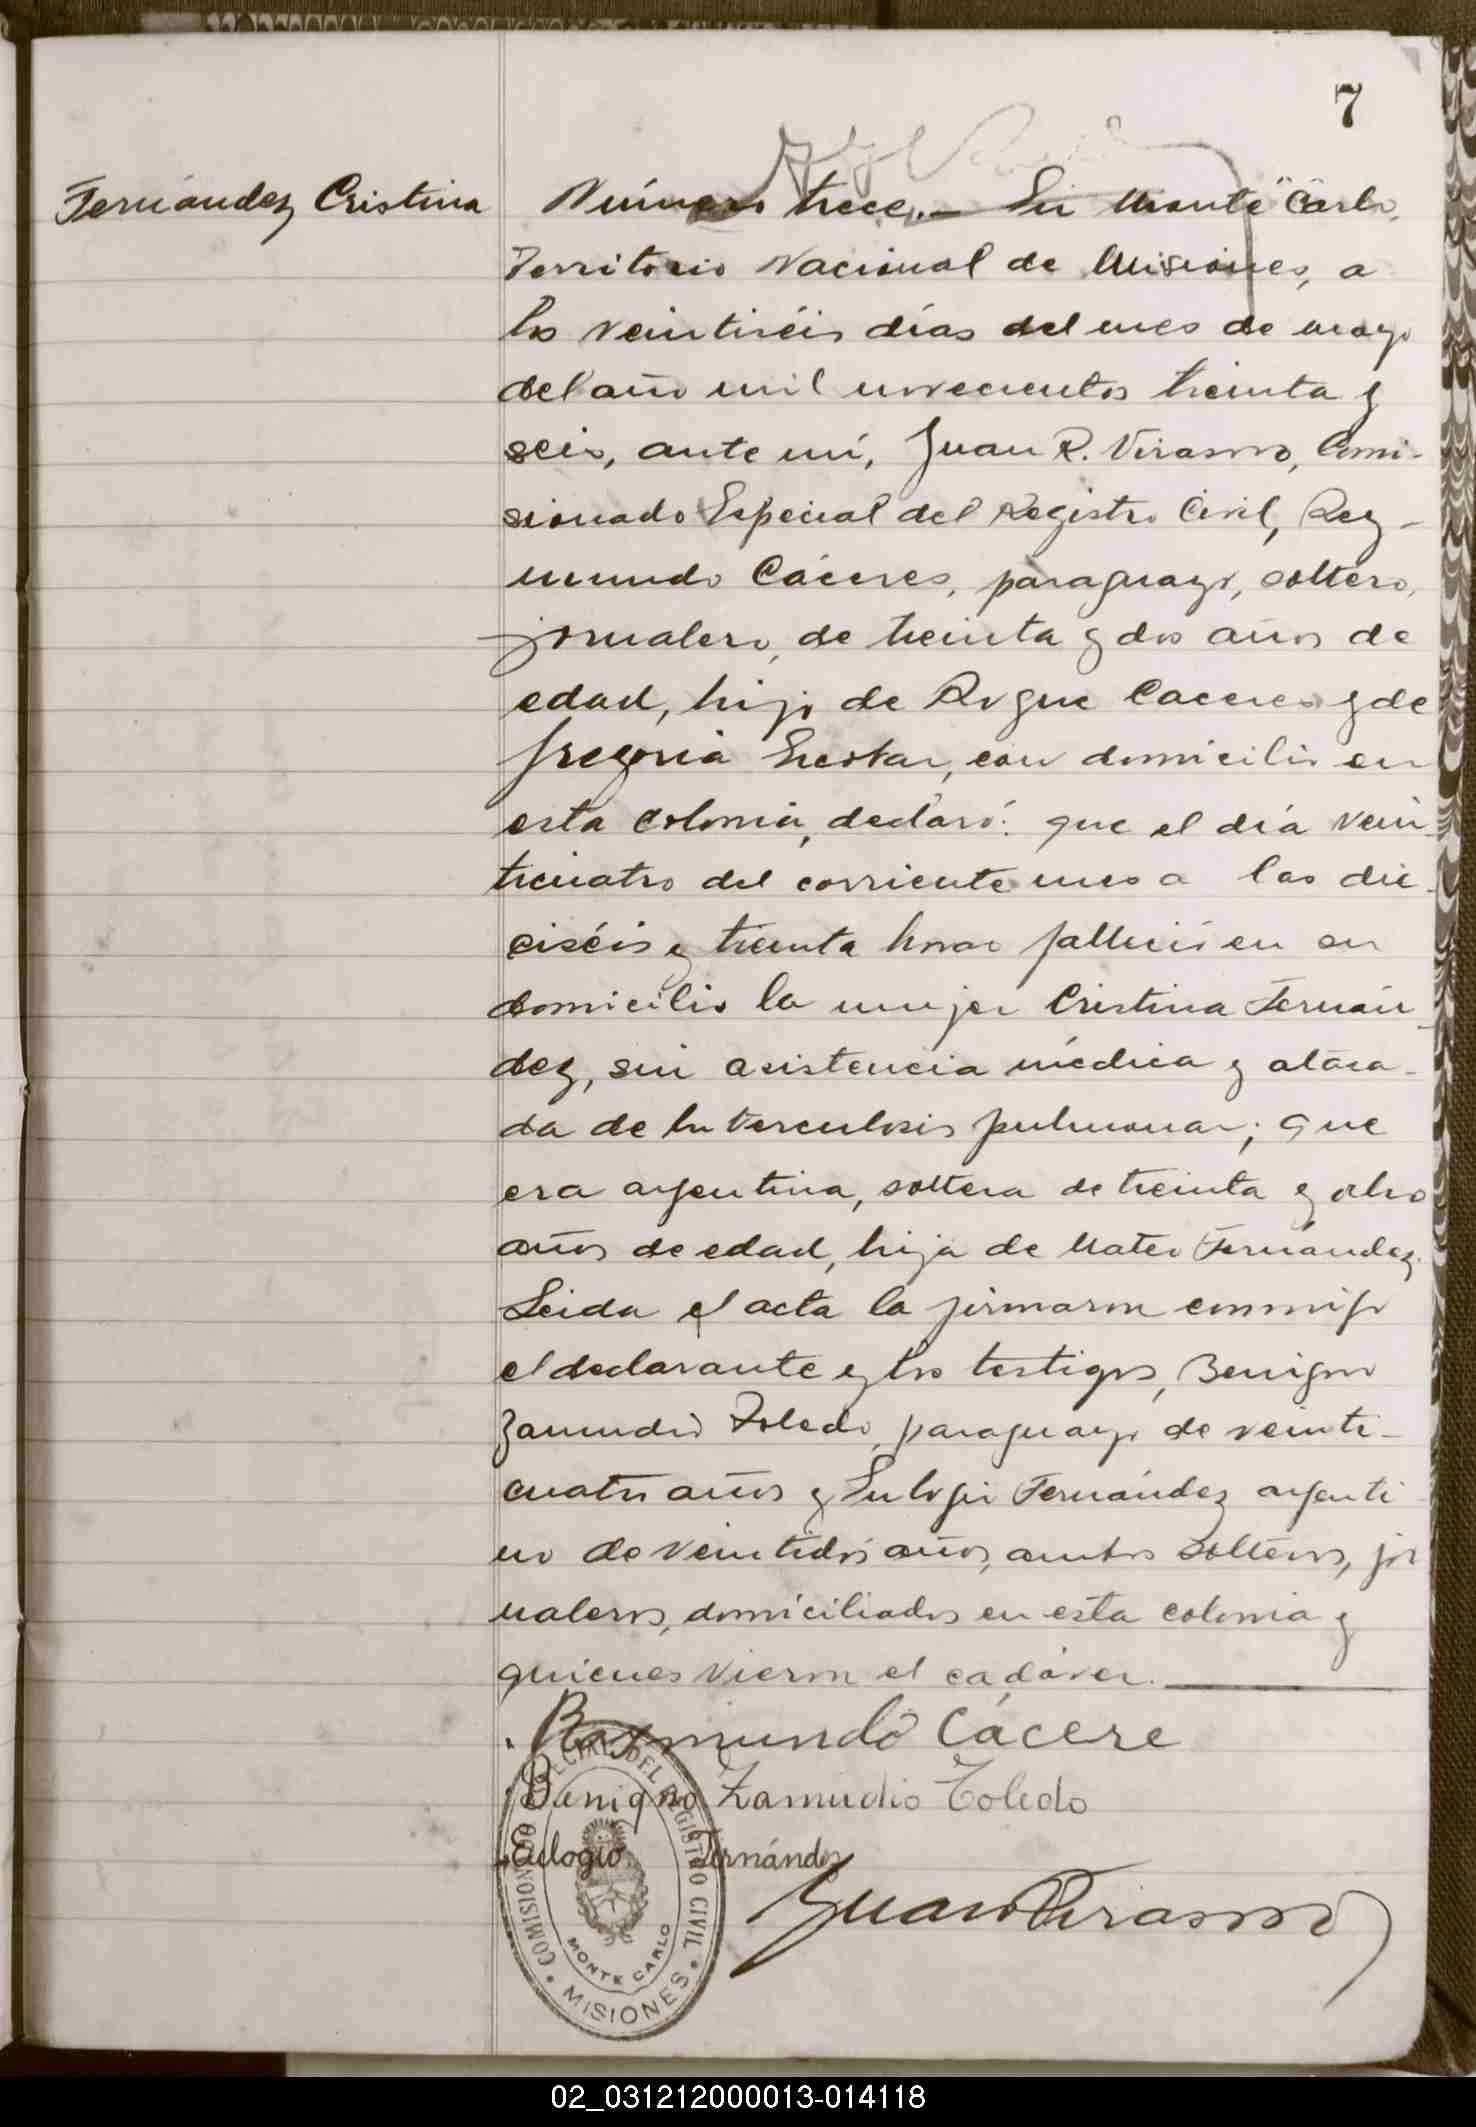 7
Fernández Cristina
Número trece.— En Monte Carlo,
Territorio Nacional de Misiones, a
los veintiséis días del mes de mayo
del año mil novecientos treinta y
seis, ante mí, Juan R. Virasoro, Comi-
sionado Especial del Registro Civil, Rey-
mundo Cáceres, paraguayo, soltero,
jornalero, de treinta y dos años de
edad, hijo de Roque Caceres y de
Gregoria con domicilio en
esta colonia, declaró: que el día vein-
ticuatro del corriente mes a las die-
ciséis y treinta horas falleció en su
domicilio la mujer Cristina Fernán-
dez, sin asistencia médica y ataca-
da de tuberculosis pulmonar; que
era argentina, soltera de treinta y ocho
años de edad, hija de Mateo Fernández.
Leida el acta la firmaron conmigo
el declarante y los testigos, Benigno
Zamudio Toledo, paraguayo de veinti-
cuatro años y Eulogio Fernández argenti-
no de veintidós años, ambos solteros, jor
naleros, domiciliados en esta colonia y
quienes vieron el cadáver.
Raymundo Cácere
Benigno Zamudio Toledo
Eulogio Fernández
Juan R Virasoro
COMISIONADO ESPECIAL DEL REGISTRO CIVIL
MONTE CARLO
· MISIONES ·
02_031212000013-014118